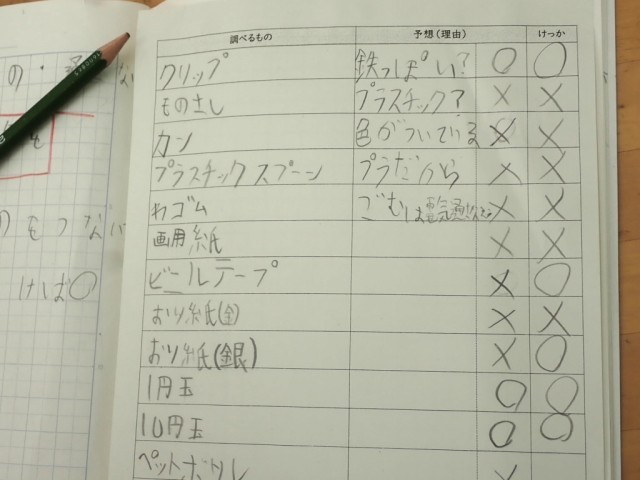 調べるもの 予想(理由) けっか
クリップ 鉄っぽい? ○ ○
ものさし プラスチック? × ×
カン 色がついている × ×
プラスチックスプーン プラだから × ×
わゴム ごむは電気通さない × ×
画用紙 × ×
ビニールテープ × ○
おり紙(金) × ×
おり紙(銀) × ○
1円玉 ○ ○
10円玉 ○ ○
ペットボトル ×
の
のもつない
ければ○